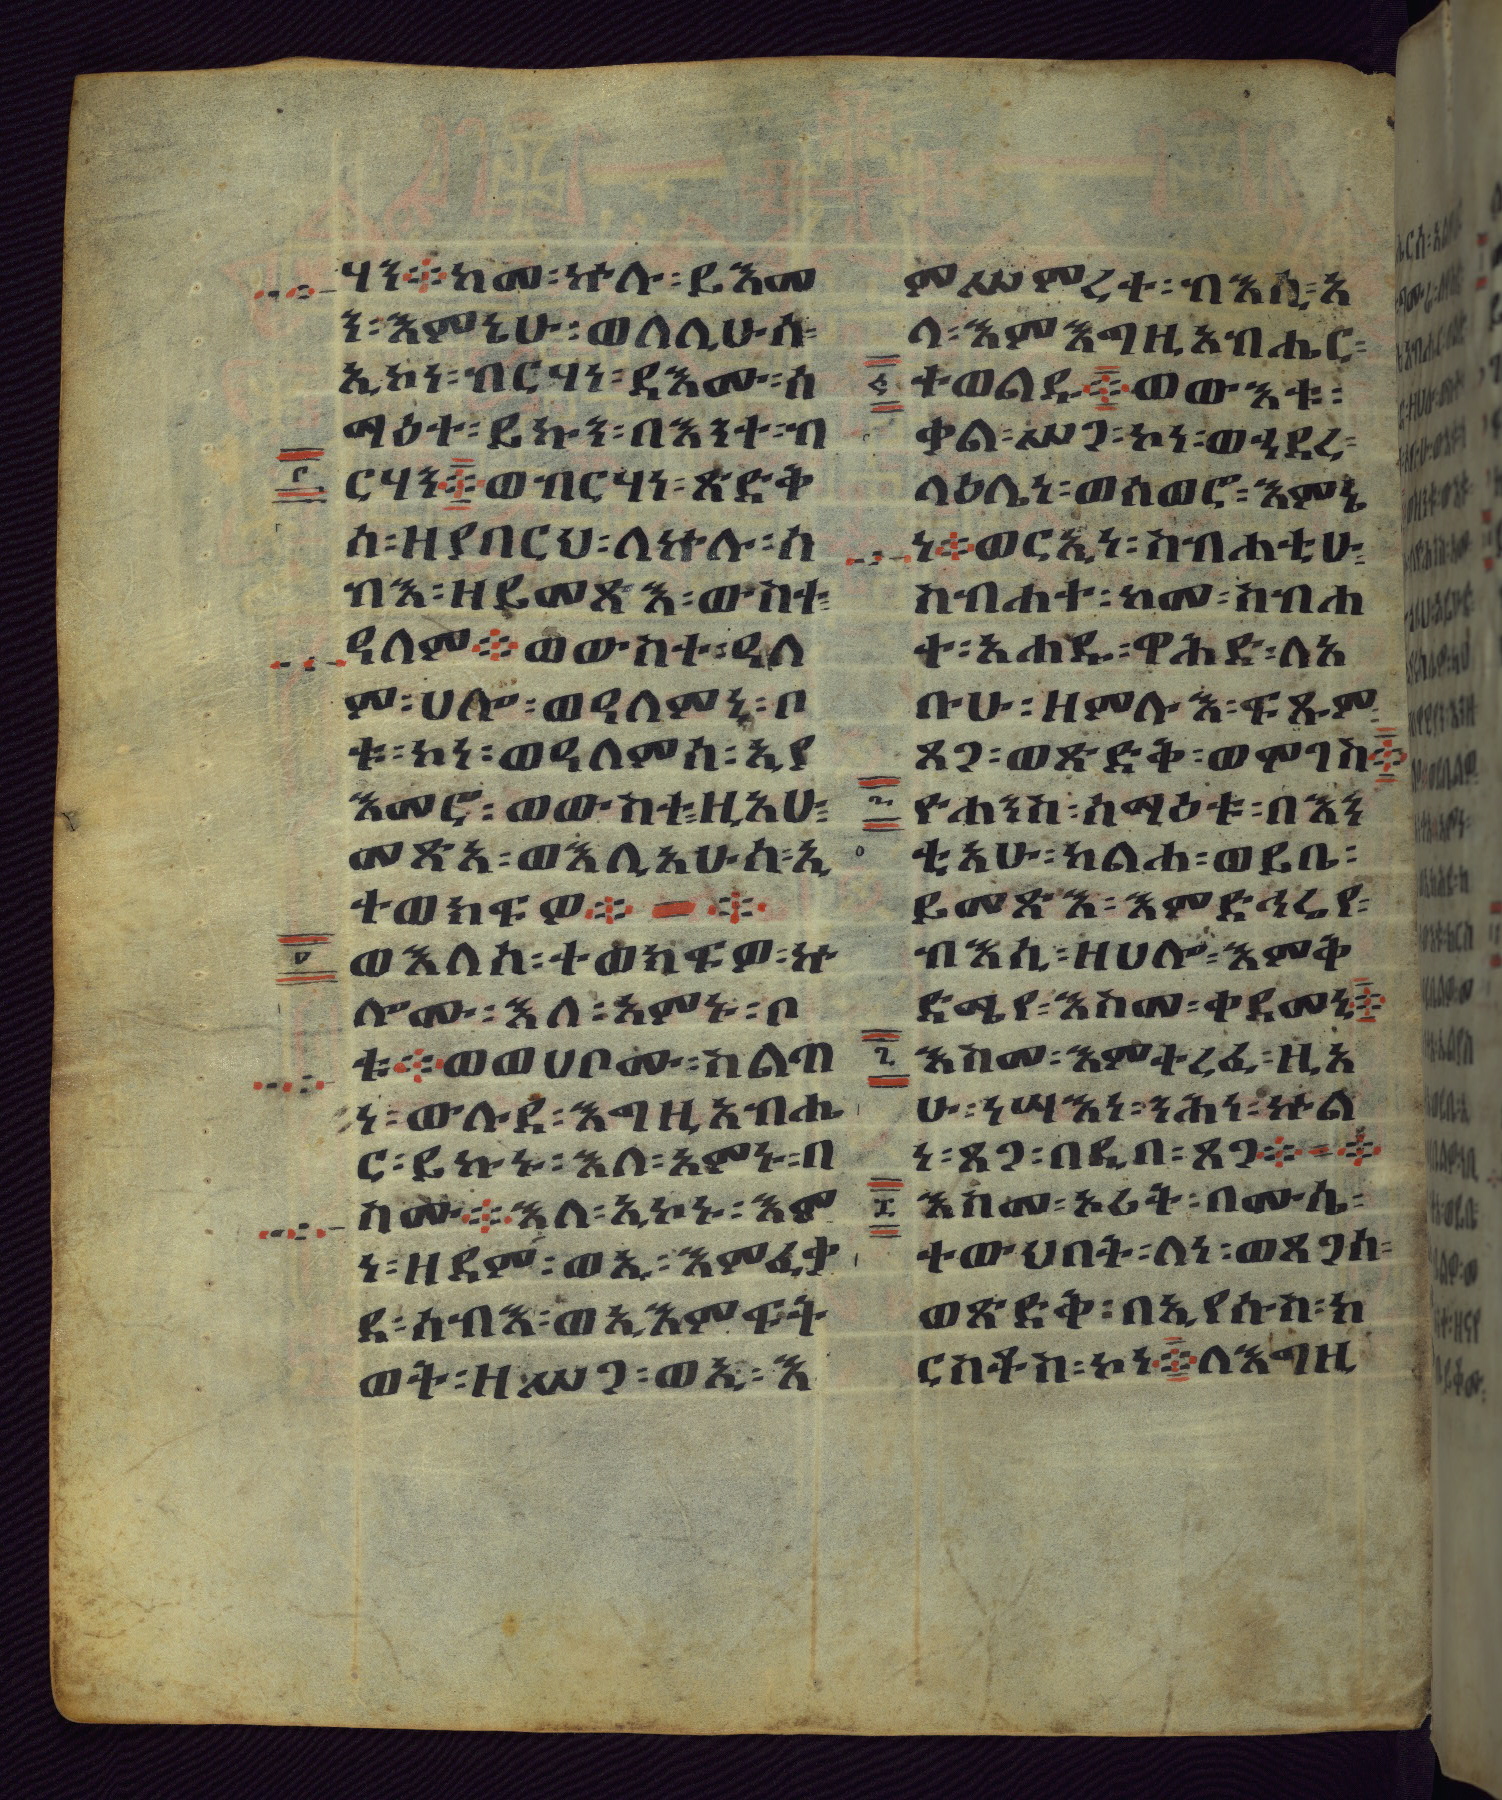 ርሃን፨ከመ፡ኵሉ፡ይእመ
ን፡እምኔሁ፡ወለሊሁሰ፡
ኢኮነ፡ብርሃነ፡ዳእሙ፡ሰ
ማዕተ፡ይኩን፡በእንተ፡ብ
ርሃን፨ወብርሃነ፡ጽድቅ
ሰ፡ዘያበርህ፡ለኵሉ፡ሰ
ብእ፡ዘይመጽእ፡ውስተ፡
ዓለም፨ወውስተ፡ዓለ
ም፡ሀሎ፡ወዓለምኒ፡ቦ
ቱ፡ኮነ፡ወዓለምሰ፡ኢያ
እመሮ፡ወውስተ፡ዚአሁ፡
መጽአ፡ወእሊአሁሰ፡ኢ
ተወክፍዎ፨ ፨
ወእለሰ፡ተወክፍዎ፡ኵ
ሎሙ፡እለ፡አምኑ፡ቦ
ቱ፨ወወሀቦሙ፡ሥልጣ
ነ፡ውሉደ፡እግዚአብሔ
ር፡ይኩኑ፡እለ፡አምኑ፡በ
ስሙ፨እለ፡ኢኮኑ፡እም
ነ፡ዘደም፡ወኢ፡እምፈቃ
ደ፡ሰብእ፡ወኢእምፍት
ወት፡ዘሥጋ፡ወኢ፡እ
ምሥምረተ፡ብእሲ፡አ
ላ፡እምእግዚአብሔር፡
ተወልዱ፨ወውእቱ፡
ቃል፡ሥጋ፡ኮነ፡ወኀደረ፡
ላዕሌነ፡ወሰወሮ፡እምኔ
ነ፨ወርኢነ፡ስብሐቲሁ፡
ስብሐተ፡ከመ፡ስብሐ
ተ፡አሐዱ፡ዋሕድ፡ለአ
ቡሁ፡ዘምሉእ፡ፍጹም፡
ጸጋ፡ወጽድቅ፡ወሞገስ፨
ዮሐንስ፡ሰማዕቱ፡በእን
ቲአሁ፡ከልሐ፡ወይቤ፡
ይመጽእ፡እምድኅሬየ፡
ብእሲ፡ዘሀሎ፡እምቅ
ድሜየ፡እስመ፡ቀደመኒ፨
እስመ፡እምተረፈ፡ዚአ
ሁ፡ነሣእነ፡ንሕነ፡ኵል
ነ፡ጸጋ፡በዲበ፡ጸጋ፨ ፨
እስመ፡ኦሪት፡በሙሴ፡
ተውህበት፡ለነ፡ወጸጋሰ፡
ወጽድቅ፡በኢየሱስ፡ክ
ርስቶስ፡ኮነ፨ለእግዚ